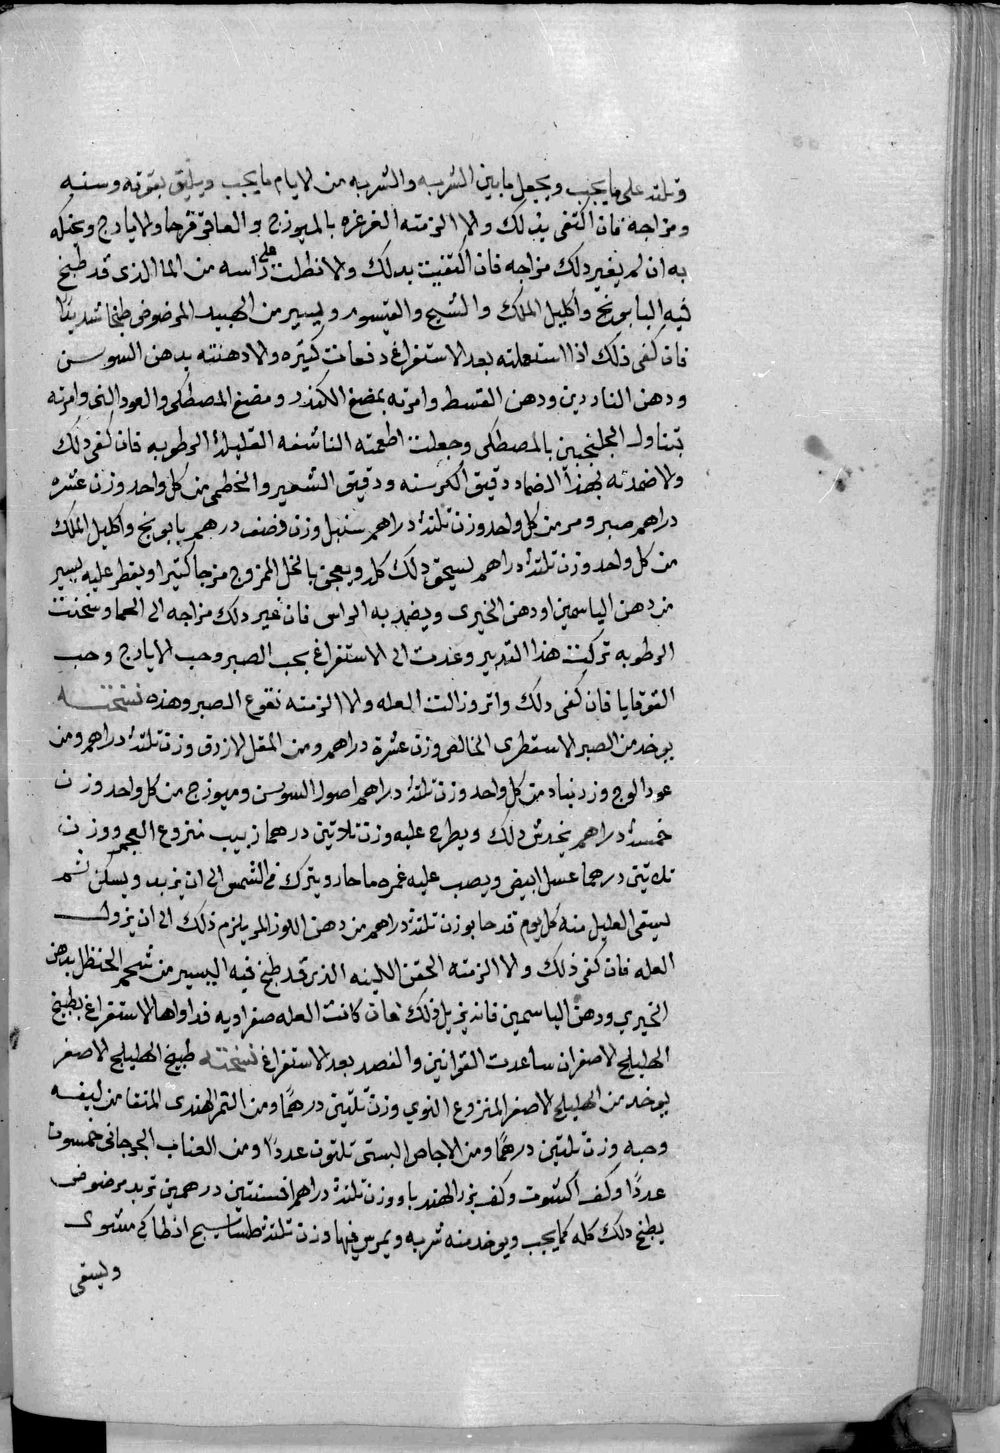 وثلثه على ما يجب ويجعل ما بين الشربه والشربه من الايام ما يجب ويليق بقوته وسنه
ومزاجه فان اكتفى بذلك والا الزمته الغرغره بالميوزج والعاقرقرحا والايارج وتحنكه
به ان لم يغير ذلك مزاجه فان اكتفيت بدلك والا نطلت على راسه من الما الذى قد طبخ
فيه البابونج واكليل الملك والشيح والقيسوم ويسير من الهبيد المرضوض طبخا شديدًا
فان كفى ذلك اذا استعملته بعد الاستفراغ دفعات كثيره والا دهنته بدهن السوسن
ودهن الناردين ودهن القسط وامرته بمضغ الكندر ومضغ المصطكى والعود النى وامرته
بتناول الجلنجبين بالمصطكى وجعلت اطعمته الناشفه القليلة الرطوبه فان كفى دلك
والا ضمدته بهذا الضماد دقيق الكرسنه ودقيق الشعير والخطمى من كل واحد وزن عشره
دراهم صبر ومر من كل واحد وزن ثلثة دراهم سنبل وزن ونصف درهم بابونج واكليل الملك
من كل واحد وزن ثلثة دراهم يسحق دلك كله ويعجن بالخل الممزوج مزجا كثيرا ويقطر عليه يسير
من دهن الياسمين او دهن الخيرى ويضمد به الراس فان غير دلك مزاجه الى الحما وسخنت
الرطوبه تركت هذا التدبير وعدت الى الاستفراغ بحب الصبر وحب الايارج وحب
القوقايا فان كفى دلك واثر وزالت العله والا الزمته نقوع الصبر وهذه نسخته
يوخد من الصبر الاسقطرى الخالص وزن عشرة دراهم ومن المقل الازرق وزن ثلثة دراهم ومن
عود الوج وزرنباد من كل واحد وزن ثلثة دراهم اصول السوسن وميوزج من كل واحد وزن
خمسة دراهم يخدش دلك ويطرح عليه وزن ثلاثين درهما زبيب منزوع العجم ووزن
ثلاثين درهما عسل ابيض ويصب عليه غمره ما حار ويترك فى الشمس الى ان يزبد ويسكن ثم
يسقى العليل منه كل يوم قدحا بوزن ثلثة دراهم من دهن اللوز المر يلزم ذلك الى ان يزول
العله فان كفى ذلك والا الزمته الحقن اللينه الذى قد طبخ فيه اليسير من شحم الحنظل بدهن
الخيري ودهن الياسمين فانه يزيل ذلك فان كانت العله صفراويه فداواها الاستفراغ بطبيخ
الهليلج الاصفر ان ساعدت القوانين والفصد بعد الاستفراغ نسخته طبيخ الهليلج الاصفر
يوخد من الهليلج الاصفر المنزوع النوي وزن ثلثين درهمًا ومن التمر الهندى المنقا من ليفه
وحبه وزن ثلثين درهمًا ومن الاجاص البستى ثلثون عددًا ومن العناب الجرجانى خمسون
عددًا وكف اكشوت وكف بزر الهندبا ووزن ثلثة دراهم افسنتين درهمين تربد مرضوض
يطبخ دلك كله كما يجب ويوخد منه شربه ويمرس فيها وزن ثلثة انطاكي مشوى
وليسقى